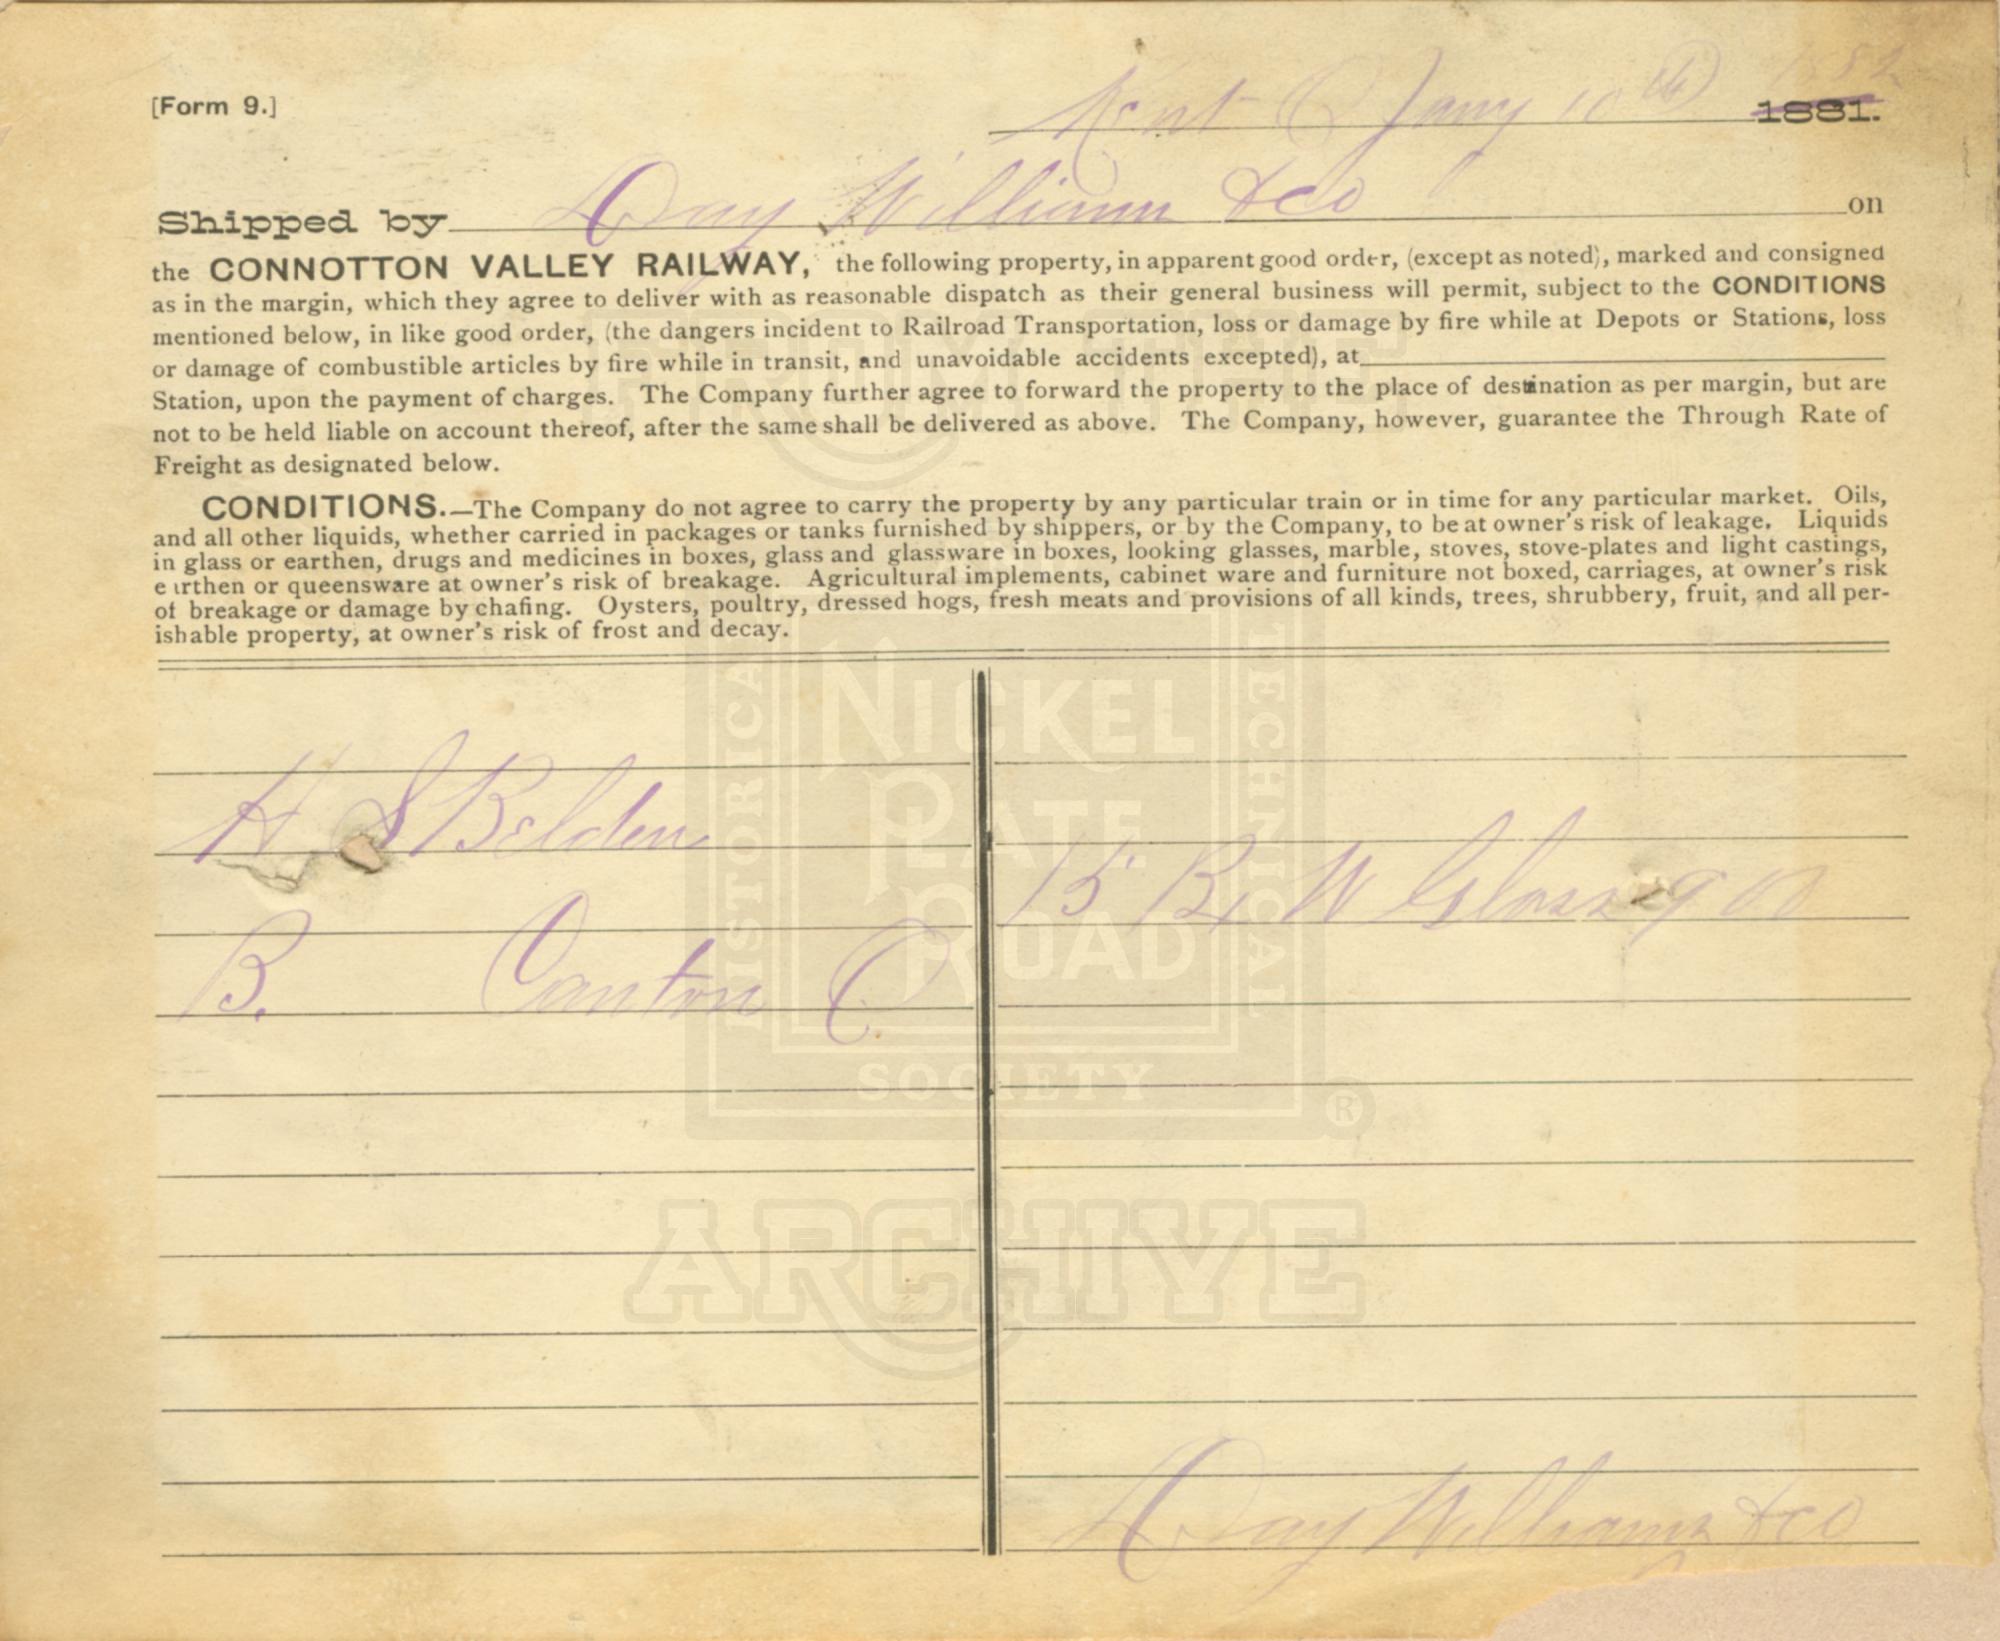 [Form 9.]
Kent O Jany 10th 1882
1881.
Shipped by Day William &co on
the CONNOTTON VALLEY RAILWAY, the following property, in apparent good order, (except as noted), marked and consigned
as in the margin, which they agree to deliver with as reasonable dispatch as their general business will permit, subject to the CONDITIONS
mentioned below, in like good order, (the dangers incident to Railroad Transportation, loss or damage by fire while at Depots or Stations, loss
or damage of combustible articles by fire while in transit, and unavoidable accidents excepted), at
Station, upon the payment of charges. The Company further agree to forward the property to the place of destination as per margin, but are
not to be held liable on account thereof, after the same shall be delivered as above. The Company, however, guarantee the Through Rate of
Freight as designated below.
CONDITIONS.—The Company do not agree to carry the property by any particular train or in time for any particular market. Oils,
and all other liquids, whether carried in packages or tanks furnished by shippers, or by the Company, to be at owner's risk of leakage. Liquids
in glass or earthen, drugs and medicines in boxes, glass and glassware in boxes, looking glasses, marble, stoves, stove-plates and light castings,
e rthen or queensware at owner's risk of breakage. Agricultural implements, cabinet ware and furniture not boxed, carriages, at owner's risk
of breakage or damage by chafing. Oysters, poultry, dressed hogs, fresh meats and provisions of all kinds, trees, shrubbery, fruit, and all per-
ishable property, at owner's risk of frost and decay.
H S Belden
B. Canton O
15 Bx W Glass 900
Day Williams &co
HISTORICAL
TECHNICAL
NICKEL
PLATE
ROAD
SOCIETY
®
ARCHIVE